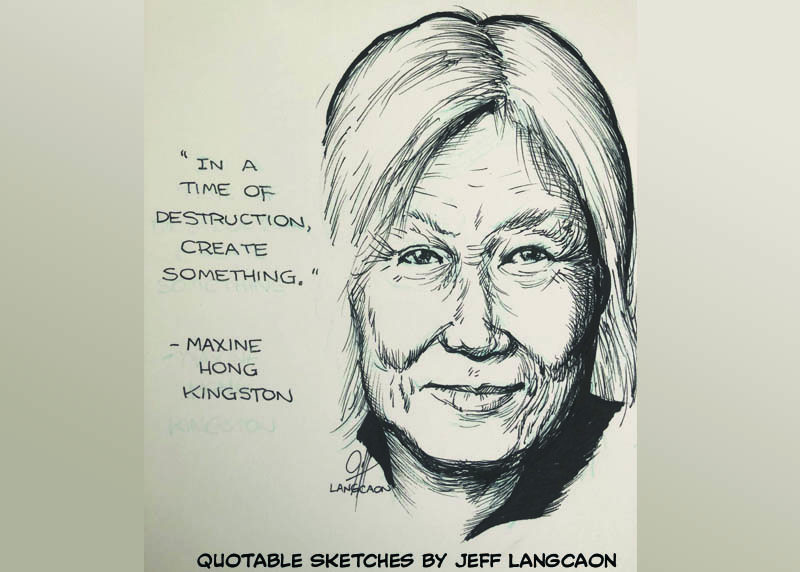 "IN A
TIME OF
DESTRUCTION,
CREATE
SOMETHING."
- MAXINE
HONG
KINGSTON
KINGSTON
LANGCAON
QUOTABLE SKETCHES BY JEFF LANGCAON